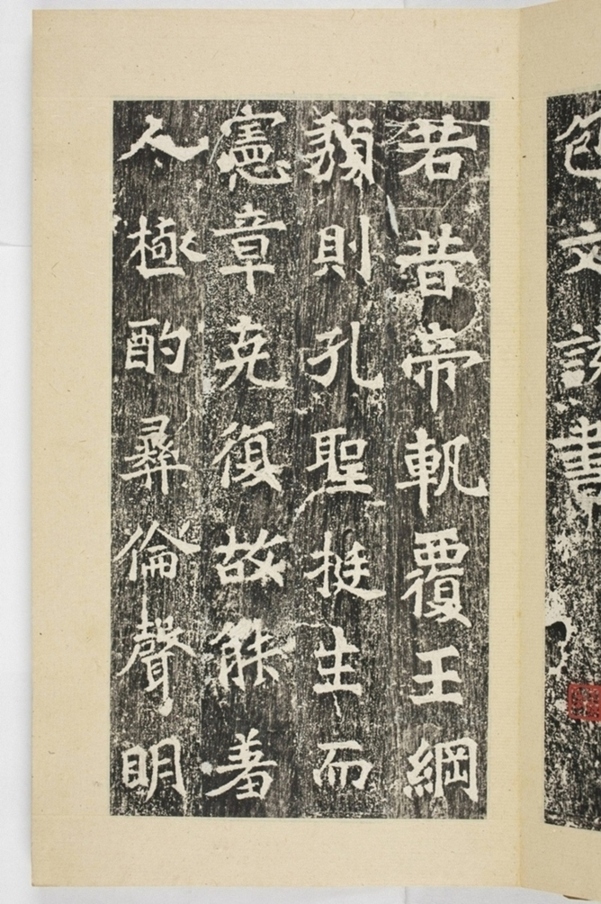 若昔帝軌覆王綱
頹則孔聖挺生而
憲章克復故能著
人極酌彝倫聲明